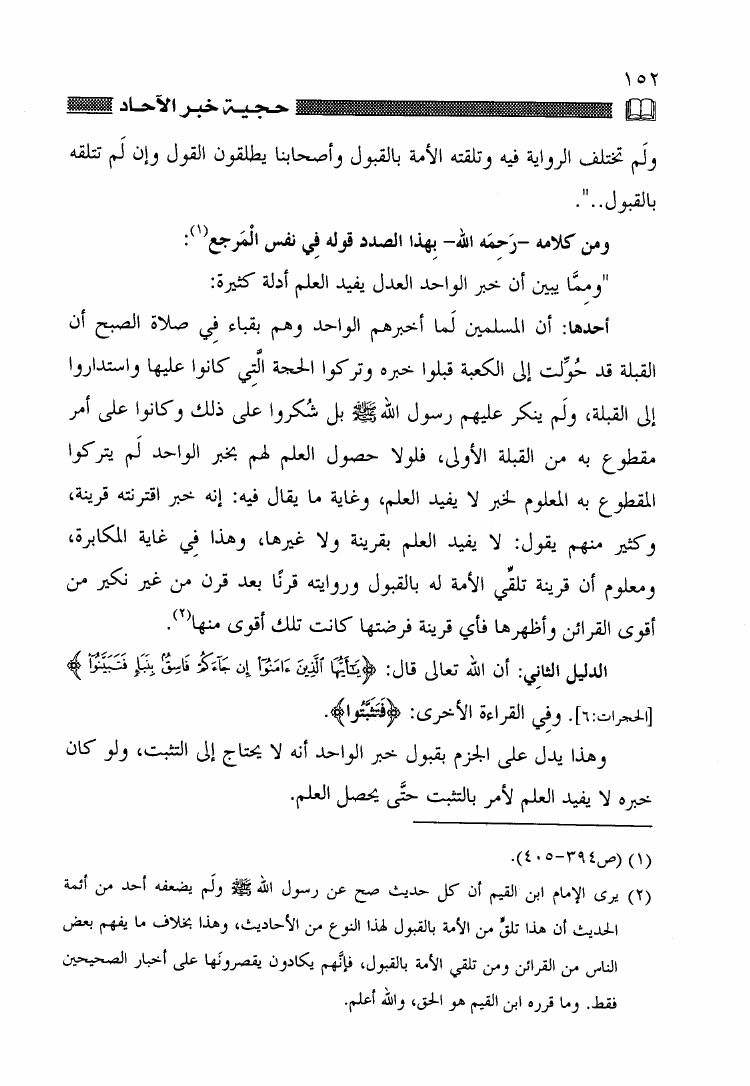 ١٥٢
حجية خبر الآحاد
ولَم تختلف الرواية فيه وتلقته الأمة بالقبول وأصحابنا يطلقون القول وإن لَم تتلقه
بالقبول..".
ومن كلامه -رَحِمَه الله- بِهذا الصدد قوله فِي نفس الْمَرجع(١):
"ومِمَّا يبين أن خبر الواحد العدل يفيد العلم أدلة كثيرة:
أحدها: أن المسلمين لَما أخبرهم الواحد وهم بقباء فِي صلاة الصبح أن
القبلة قد حُوِّلت إلى الكعبة قبلوا خبره وتركوا الحجة الَّتِي كانوا عليها واستداروا
إلى القبلة، ولَم ينكر عليهم رسول الله ﷺ بل شُكروا على ذلك وكانوا على أمر
مقطوع به من القبلة الأولى، فلولا حصول العلم لهم بخبر الواحد لَم يتركوا
المقطوع به المعلوم لخبر لا يفيد العلم، وغاية ما يقال فيه: إنه خبر اقترنته قرينة،
وكثير منهم يقول: لا يفيد العلم بقرينة ولا غيرها، وهذا فِي غاية المكابرة،
ومعلوم أن قرينة تلقِّي الأمة له بالقبول وروايته قرنًا بعد قرن من غير نكير من
أقوى القرائن وأظهرها فأي قرينة فرضتها كانت تلك أقوى منها(٢).
الدليل الثاني: أن الله تعالى قال: ﴿يَٰٓأَيُّهَا ٱلَّذِينَ ءَامَنُوٓا۟ إِن جَآءَكُمْ فَاسِقٌۢ بِنَبَإٍ فَتَبَيَّنُوٓا۟﴾
[الحجرات:٦]. وفِي القراءة الأخرى: ﴿فَتَثَبَّتُوا﴾.
وهذا يدل على الجزم بقبول خبر الواحد أنه لا يحتاج إلى التثبت، ولو كان
خبره لا يفيد العلم لأمر بالتثبت حتَّى يحصل العلم.
(١) (ص٣٩٤-٤٠٥).
(٢) يرى الإمام ابن القيم أن كل حديث صح عن رسول الله ﷺ ولَم يضعفه أحد من أئمة
الحديث أن هذا تلقٍّ من الأمة بالقبول لهذا النوع من الأحاديث، وهذا بخلاف ما يفهم بعض
الناس من القرائن ومن تلقي الأمة بالقبول، فإنَّهم يكادون يقصرونَها على أخبار الصحيحين
فقط. وما قرره ابن القيم هو الحق، والله أعلم.